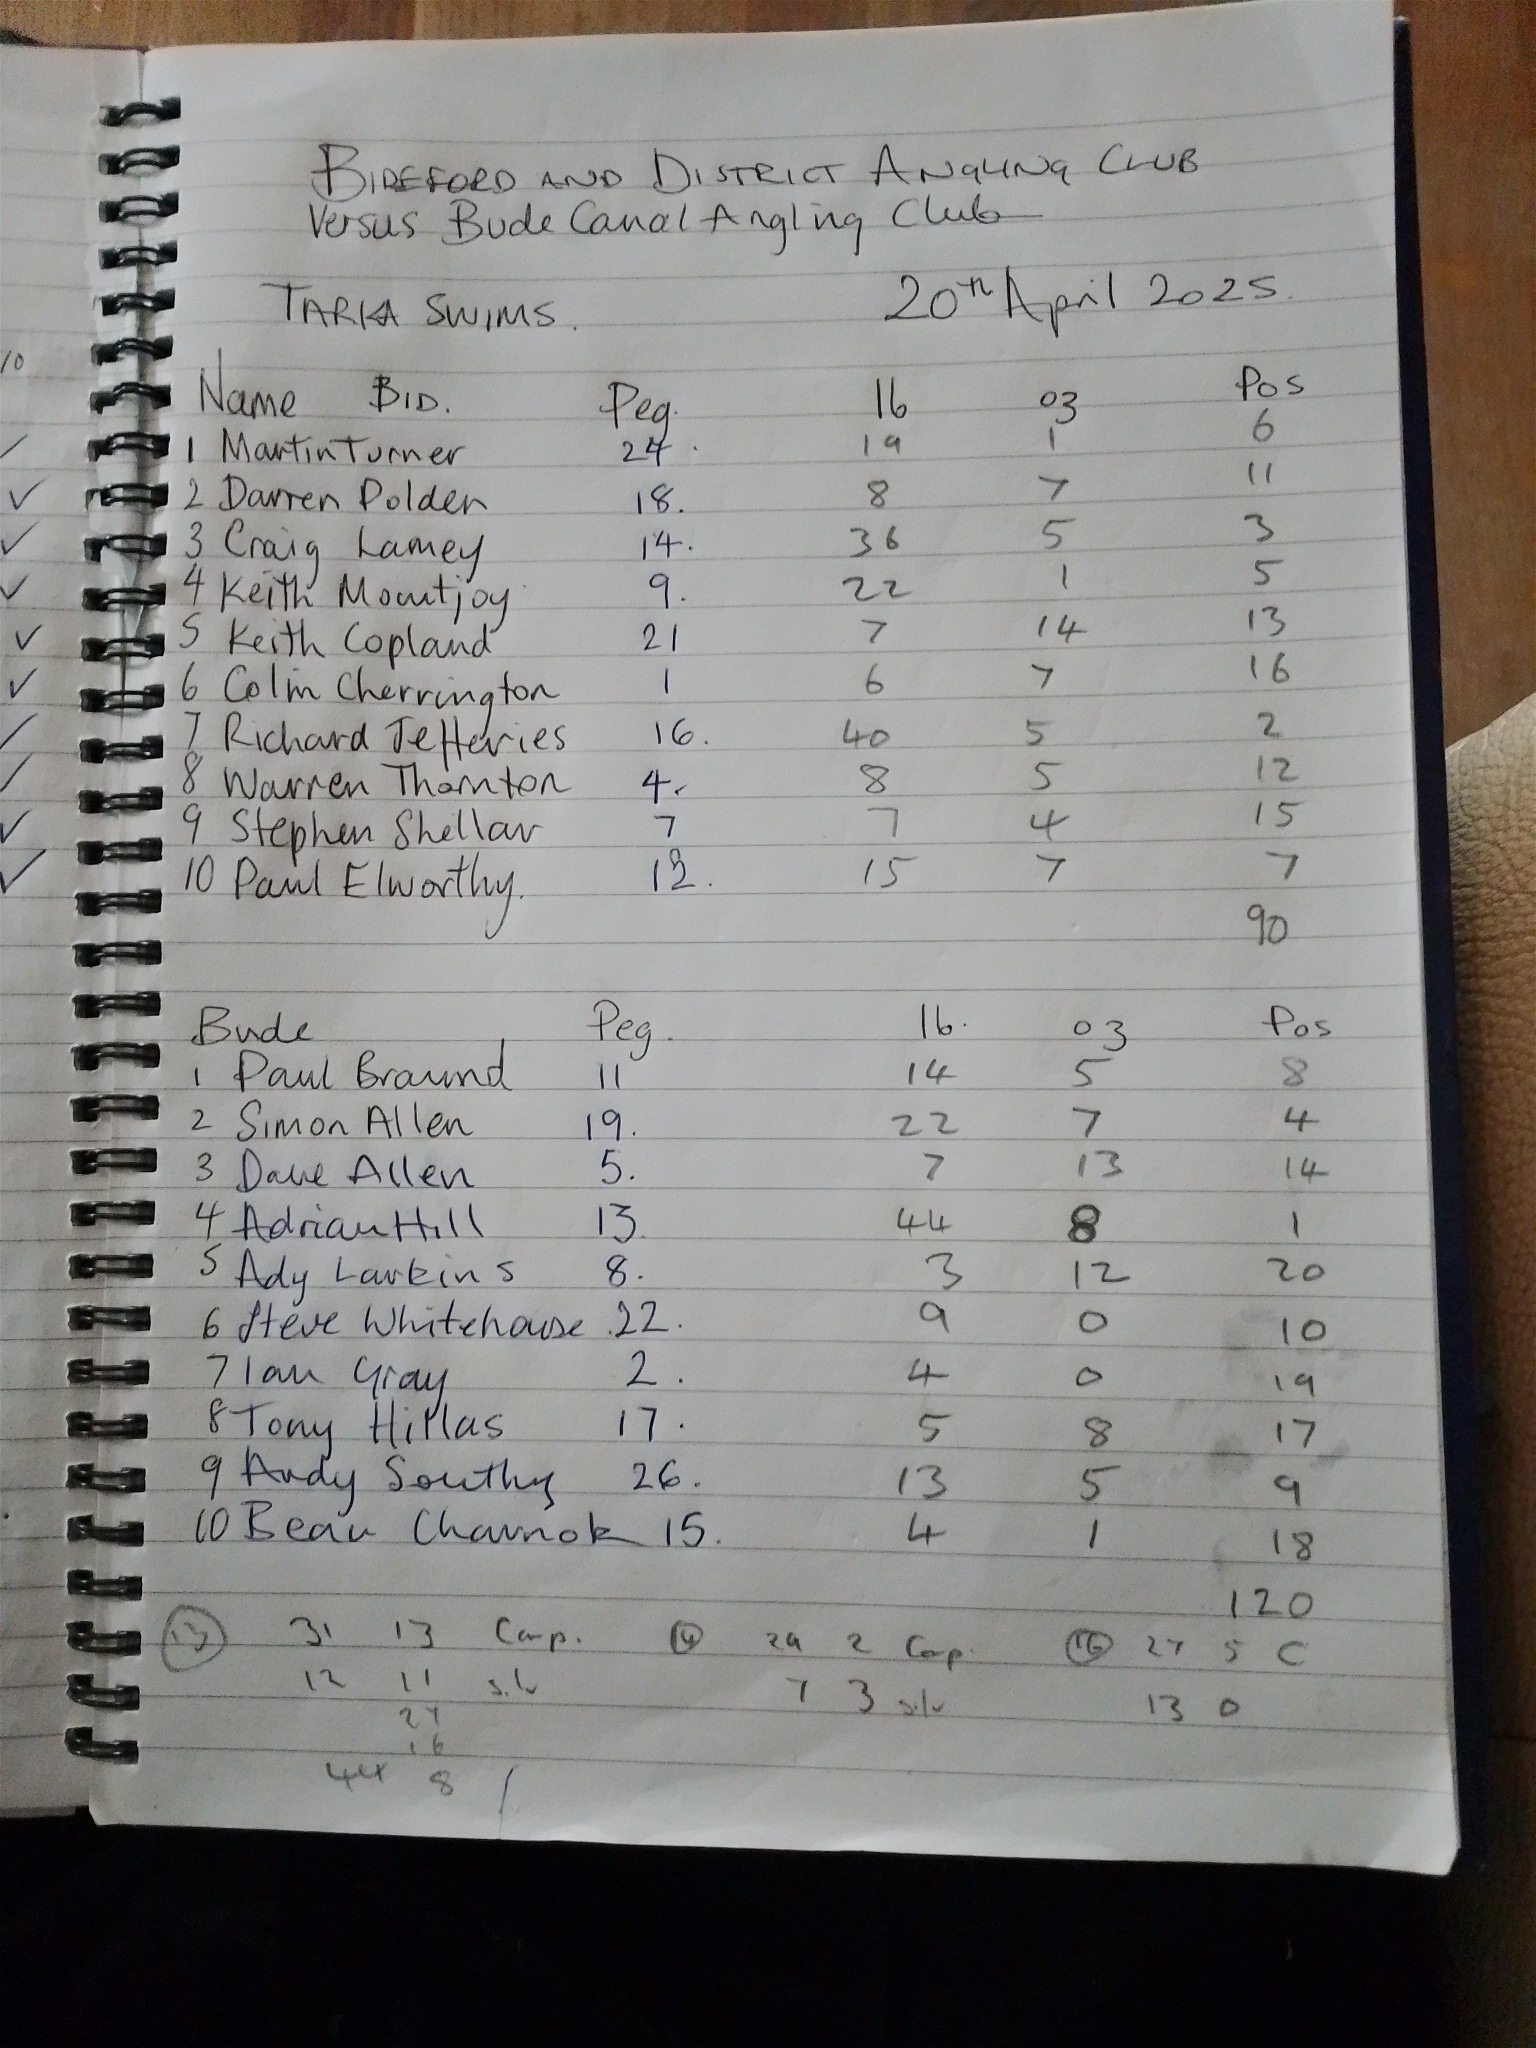 BIDEFORD AND DISTRICT ANGLING CLUB
Versus Bude Canal Angling Club
TARKA SWIMS. 20th April 2025.
Name BID. Peg. lb oz Pos
1 Martin Turner 24. 19 1 6
2 Darren Polden 18. 8 7 11
3 Craig Lamey 14. 36 5 3
4 Keith Mountjoy 9. 22 1 5
5 Keith Copland 21 7 14 13
6 Colin Cherrington 1 6 7 16
7 Richard Jefferies 16. 40 5 2
8 Warren Thornton 4. 8 5 12
9 Stephen Shellar 7 7 4 15
10 Paul Elworthy. 12. 15 7 7
90
Bude Peg. lb. oz Pos
1 Paul Braund 11 14 5 8
2 Simon Allen 19. 22 7 4
3 Dave Allen 5. 7 13 14
4 Adrian Hill 13. 44 8 1
5 Ady Larkins 8. 3 12 20
6 Steve Whitehouse 22. 9 0 10
7 Ian Gray 2. 4 0 19
8 Tony Hillas 17. 5 8 17
9 Andy Southy 26. 13 5 9
10 Beau Charnok 15. 4 1 18
120
13 31 13 Carp. 14 29 2 Carp. 16 27 5 C
12 11 silv 7 3 silv 13 0
24
16
44 8
10